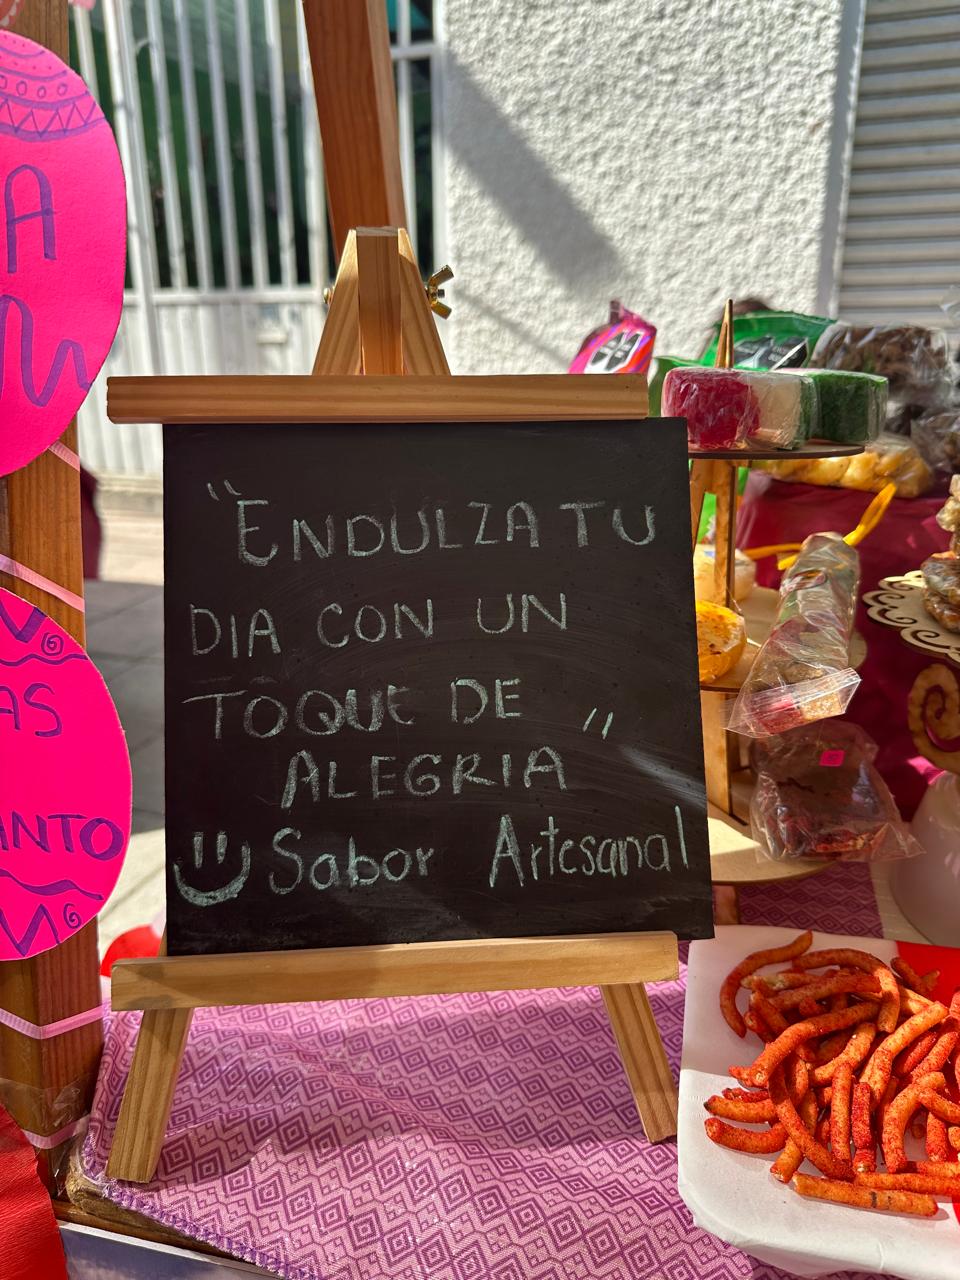 "ENDULZA TU
DIA CON UN
TOQUE DE "
ALEGRIA
Sabor Artesanal
A
AS
ANTO